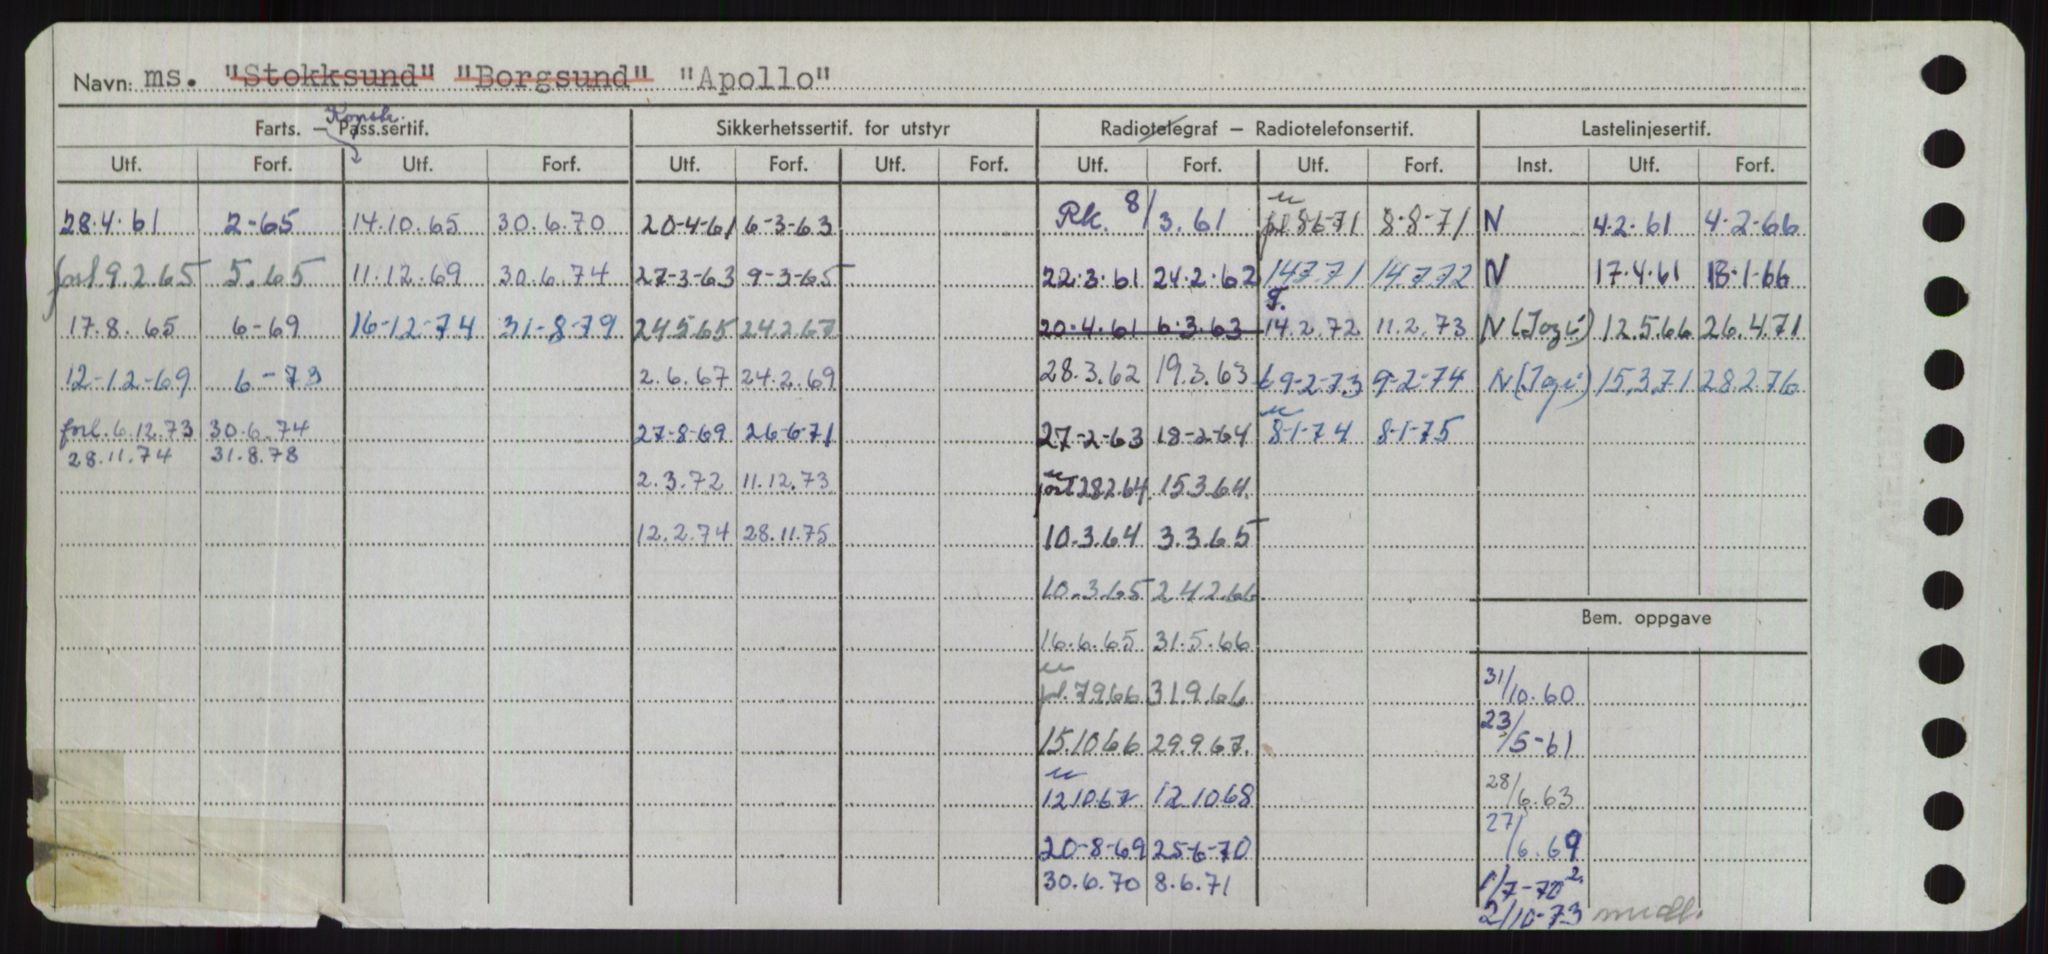 Navn: ms. "Stokksund" "Borgsund" "Apollo"
Konstr.
Farts. — Pass.sertif. Sikkerhetssertif. for utstyr Radiotelegraf — Radiotelefonsertif. Lastelinjesertif.
Utf. Forf. Utf. Forf. Utf. Forf. Utf. Forf. Utf. Forf. Utf. Forf. Inst. Utf. Forf.
28.4.61 2-65 14.10.65 30.6.70 20-4-61 6-3-63 Rk. 8/3.61 8-6-71 8-8-71 N 4.2.61 4-2-66
forl 9.2.65 5.65 11.12.69 30.6.74 27-3-63 9-3-65 22.3.61 24.2.62 14.7.71 14.7.72 N 17.4.61 13.1.66
17.8.65 6-69 16-12-74 31-8-79 24.5.65 24.2.67 20.4.61 6.3.63 14.2.72 11.2.73 N 12.5.66 26.4.71
12-12-69 6-73 2.6.67 24.2.69 28.3.62 19.3.63 9-2-73 9-2-74 N 15.3.71 28.2.76
forl. 6.12.73 30.6.74 27-8-69 26-6-71 27-2-63 18-2-64 8-1-74 8-1-75
28.11.74 31.8.78
2.3.72 11.12.73 28.2.64 15.3.64
12.2.74 28.11.75 10.3.64 3.3.65
10.3.65 24.2.66
Bem. oppgave
16.6.65 31.5.66
7.9.66 31.9.66 31/10.60
15.10.66 29.9.67. 23/5-61
12.10.67 12.10.68 28/6.63
20-8-69 25-6-70 27/6.69
30.6.70 8.6.71 1/7-70
2/10-73 midl.